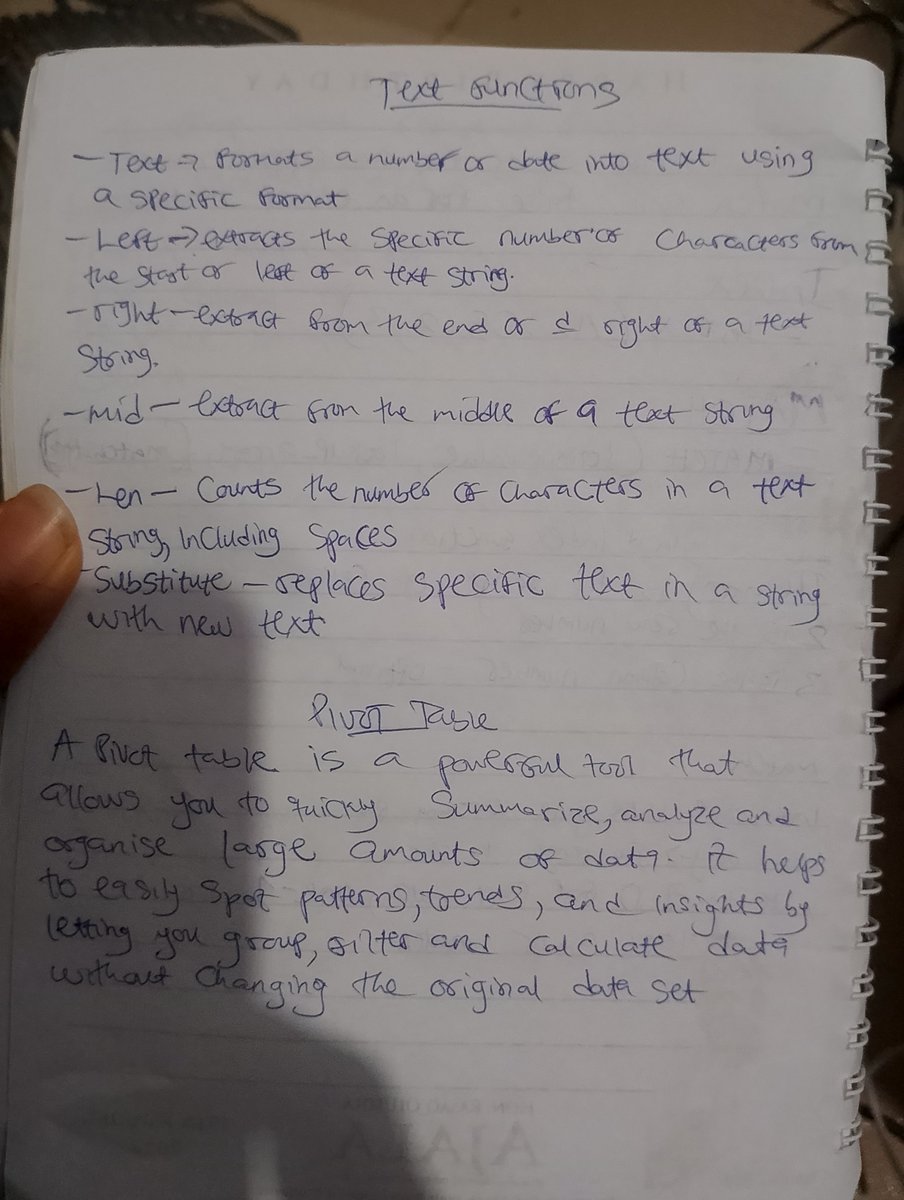 Text functions
- Text → formats a number or date into text using
a specific format
- Left → extracts the specific number of characters from
the start or left of a text string.
- right - extract from the end or d right of a text
string.
- mid - extract from the middle of a text string
- Len - Counts the number of characters in a text
string, including spaces
- Substitute - replaces specific text in a string
with new text
Pivot Table
A Pivot table is a powerful tool that
allows you to quickly summarize, analyze and
organise large amounts of data. it helps
to easily spot patterns, trends, and insights by
letting you group, filter and calculate data
without changing the original data set